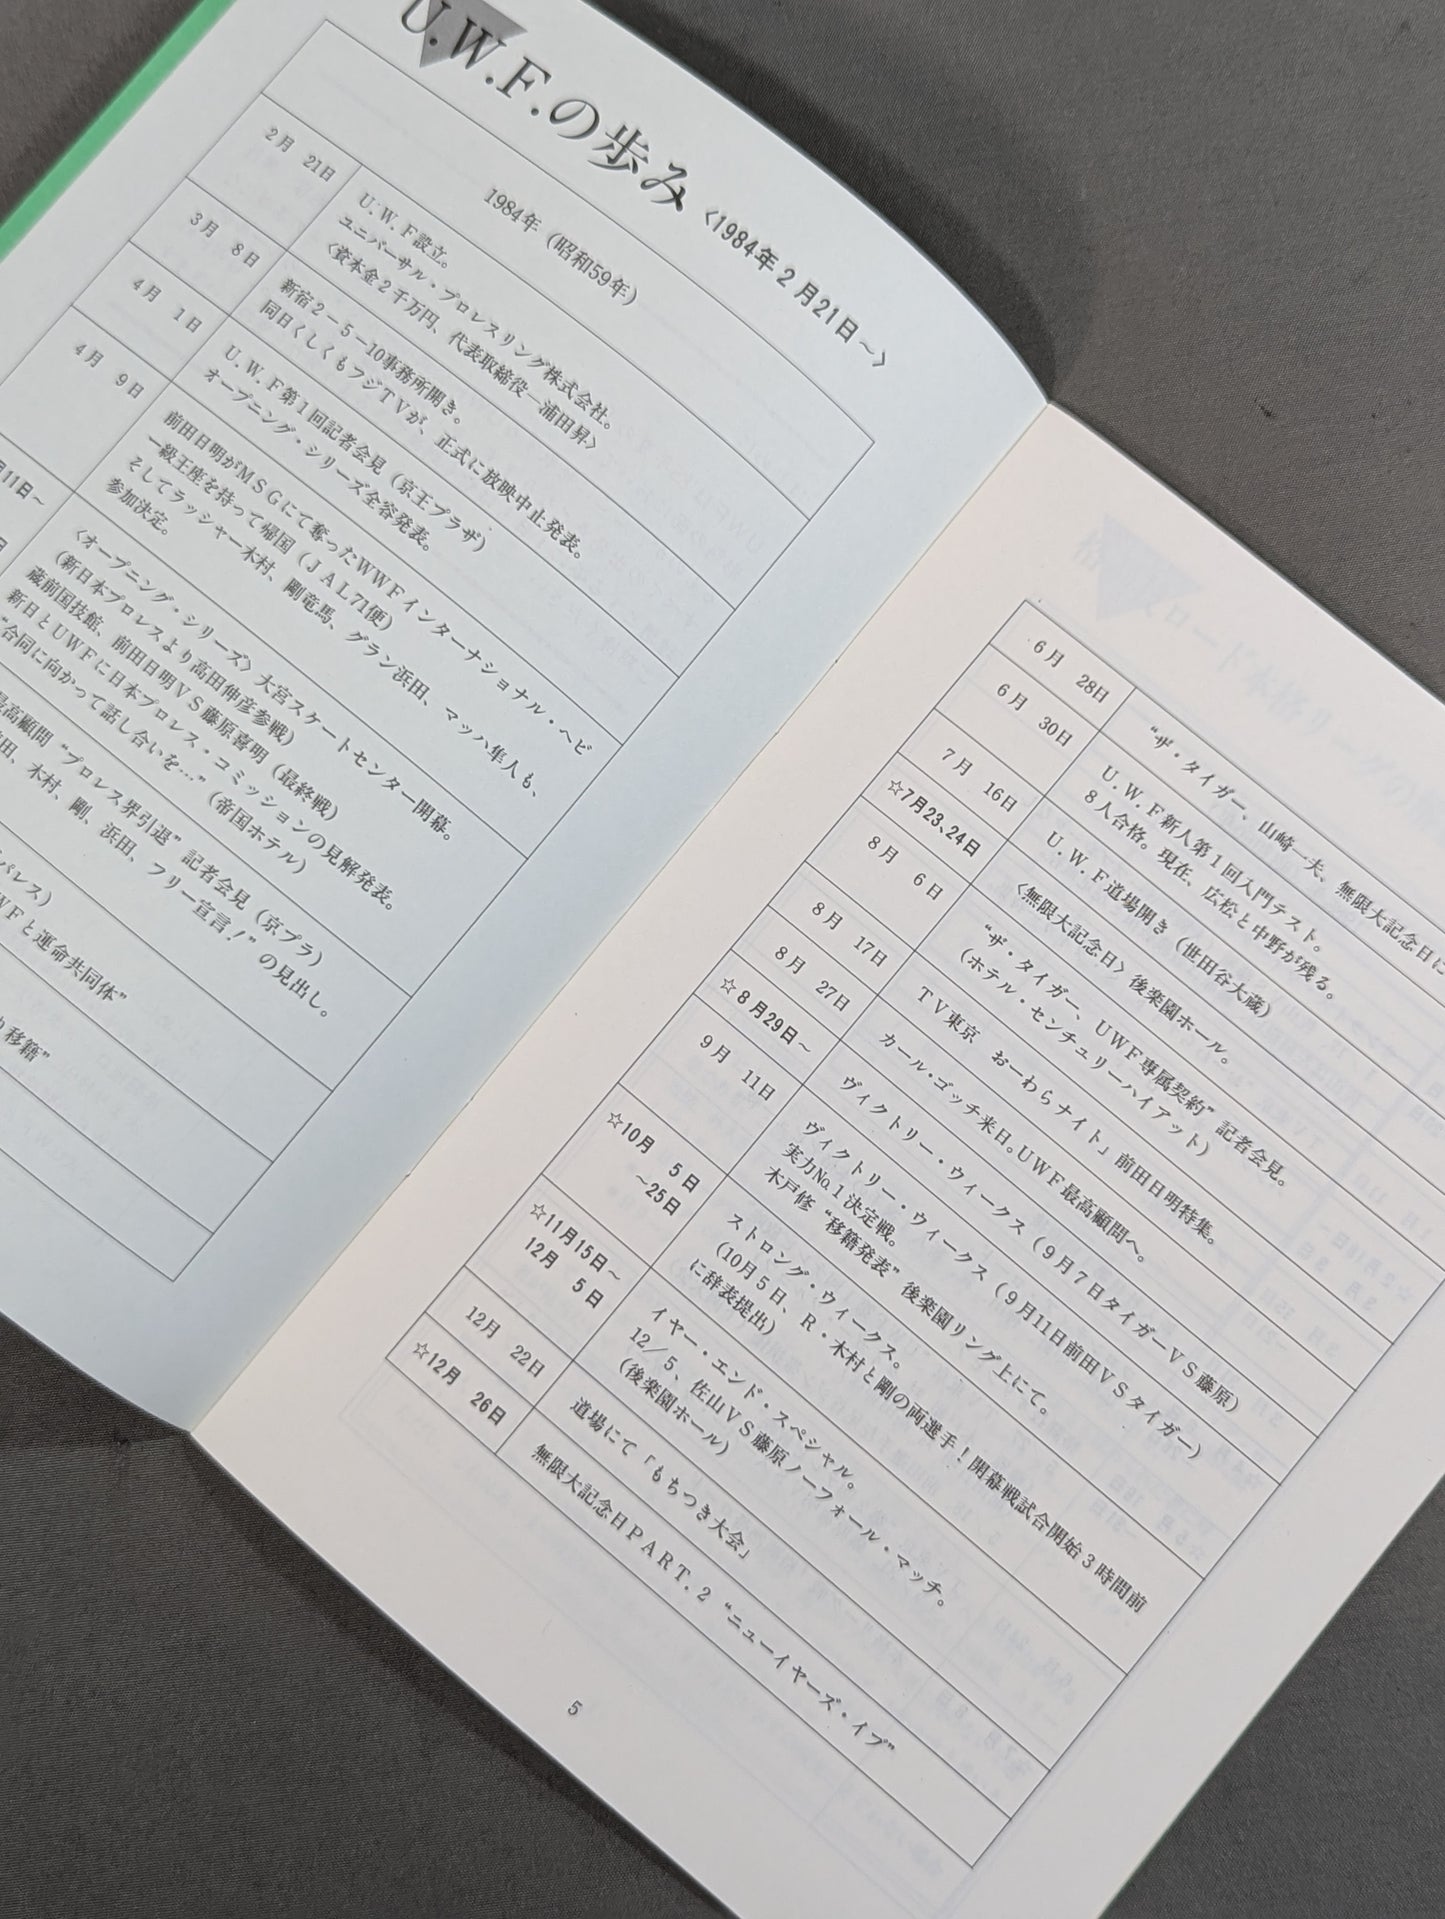 U.W.F.の歩み〈1984年2月21日~〉
1984年（昭和59年）
2月 21日
U.W.F設立。
ユニバーサル・プロレスリング株式会社。
〈資本金2千万円、代表取締役―浦田昇〉
3月 8日
新宿2-5-10事務所開き。
同日くしくもフジTVが、正式に放映中止発表。
4月 1日
U.W.F第1回記者会見（京王プラザ）
オープニング・シリーズ全容発表。
4月 9日
前田日明がMSGにて奪ったWWFインターナショナル・ヘビ
一級王座を持って帰国（JAL71便）
そしてラッシャー木村、剛竜馬、グラン浜田、マッハ隼人も、
参加決定。
月11日~
〈オープニング・シリーズ〉大宮スケートセンター開幕。
（新日本プロレスより高田伸彦参戦）
日
蔵前国技館、前田日明VS藤原喜明（最終戦）
新日とUWFに日本プロレス・コミッションの見解発表。
“合同に向かって話し合いを…”（帝国ホテル）
最高顧問“プロレス界引退”記者会見（京プラ）
田、木村、剛、浜田、フリー宣言！”の見出し。
パレス）
WFと運命共同体”
り移籍”
6月 28日
“ザ・タイガー、山崎一夫、無限大記念日に
6月 30日
U.W.F新人第1回入門テスト。
8人合格。現在、広松と中野が残る。
7月 16日
U.W.F道場開き（世田谷大蔵）
☆7月23、24日
〈無限大記念日〉後楽園ホール。
8月 6日
“ザ・タイガー、UWF専属契約”記者会見。
（ホテル・センチュリーハイアット）
8月 17日
TV東京 おーわらナイト」前田日明特集。
8月 27日
カール・ゴッチ来日。UWF最高顧問へ。
☆8月29日~
ヴィクトリー・ウィークス（9月7日タイガーVS藤原）
9月 11日
ヴィクトリー・ウィークス（9月11日前田VSタイガー）
実力No.1決定戦。
木戸修“移籍発表”後楽園リング上にて。
☆10月 5日
~25日
ストロング・ウィークス。
（10月5日、R・木村と剛の両選手！開幕戦試合開始3時間前
に辞表提出）
☆11月15日~
12月 5日
イヤー・エンド・スペシャル。
12/5、佐山VS藤原ノーフォール・マッチ。
（後楽園ホール）
12月 22日
道場にて「もちつき大会」
☆12月 26日
無限大記念日PART.2“ニューイヤーズ・イブ”
5